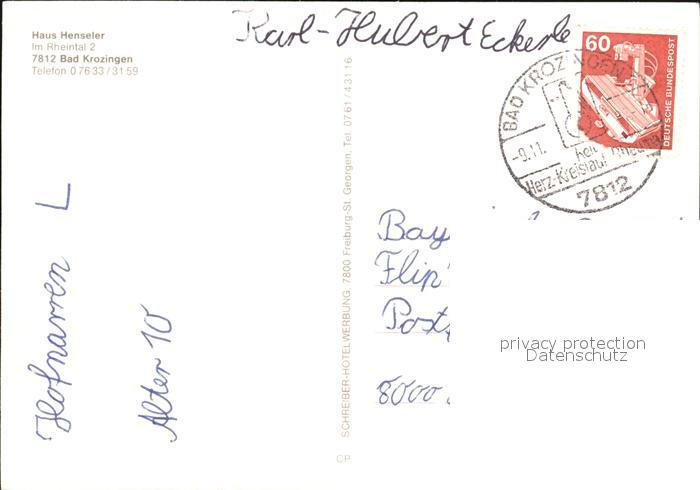 Haus Henseler
Im Rheintal 2
7812 Bad Krozingen
Telefon 0 76 33 / 31 59
Karl-Hubert Eckerle
60
DEUTSCHE BUNDESPOST
BAD KROZINGEN
-9.11.
Herz-Kreislauf
7812
Hofnarren L
Alter 10
SCHREIBER-HOTELWERBUNG, 7800 Freiburg-St. Georgen, Tel. 07 61 / 4 31 16
CP
Bay
Flip
Post
8000
privacy protection
Datenschutz